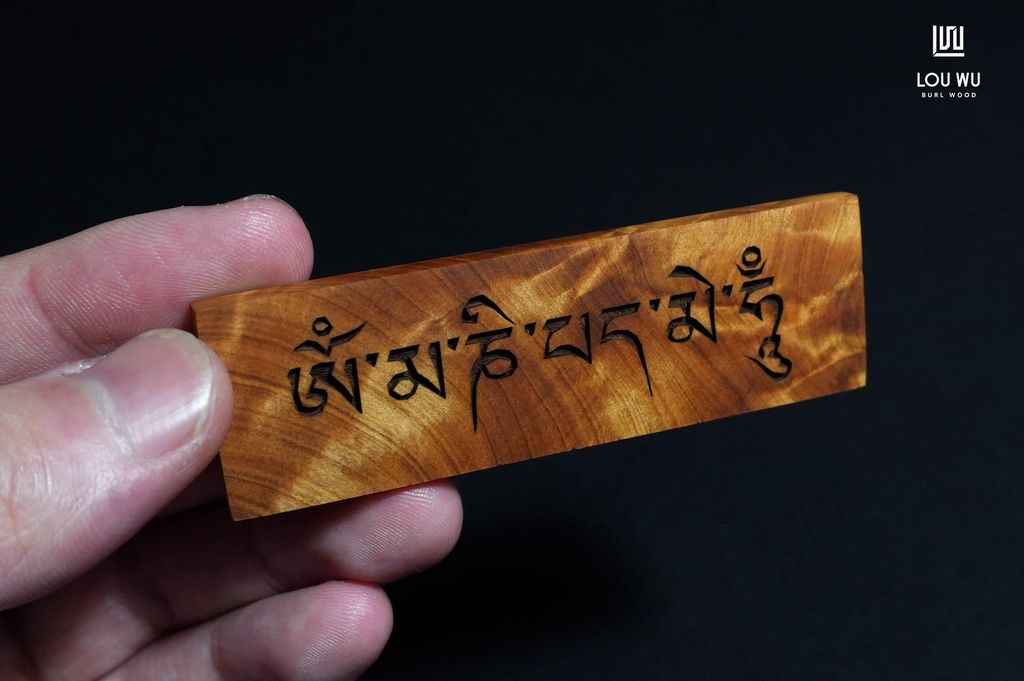 LOU WU
BURL WOOD
ཨོཾ་མ་ཎི་པད་མེ་ཧཱུྃ